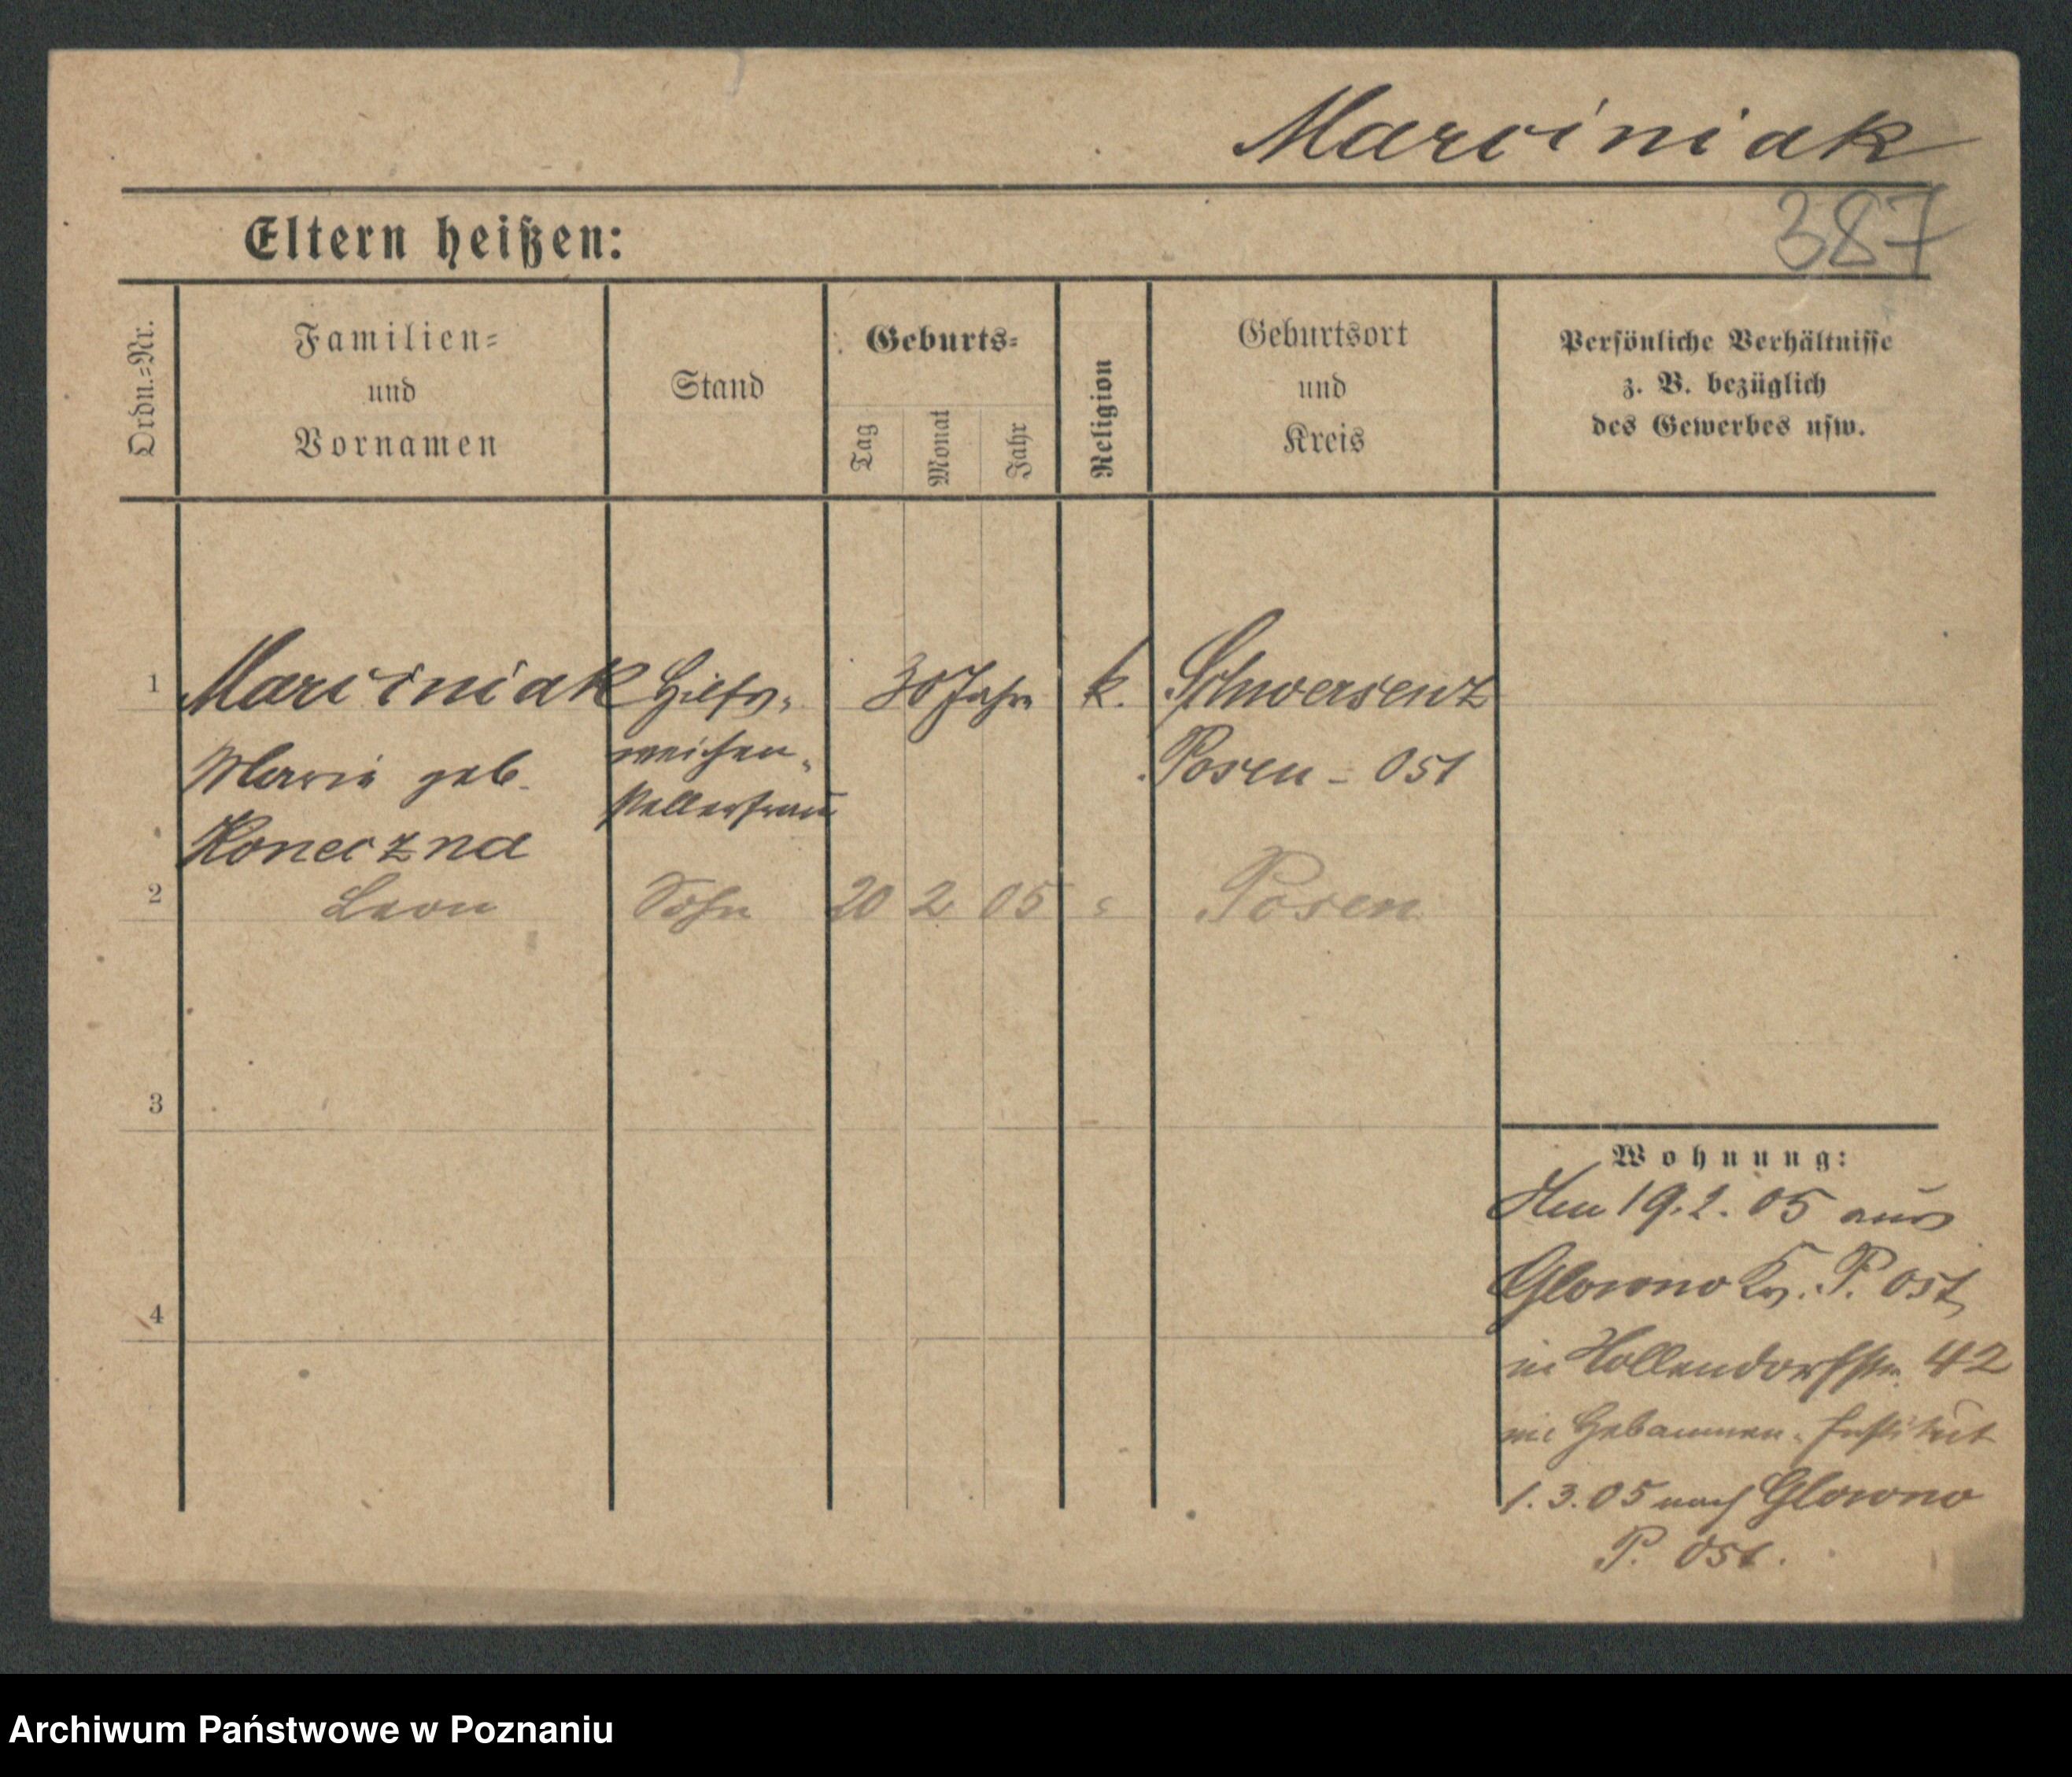 Marciniak
387
Eltern heißen:
Ordn.=Nr.
Familien=
und
Vornamen
Stand
Geburts=
Tag
Monat
Jahr
Religion
Geburtsort
und
Kreis
Persönliche Verhältnisse
z. B. bezüglich
des Gewerbes usw.
1 Marciniak Hilfs= 30 Jahre k. Schwersenz
Marie geb. weichen= Posen-Ost
stellerfrau
Koneczna
2 Leon Sohn 20 2 05 " Posen
3
Wohnung:
Am 19.2.05 aus
Glowno Kr. P. Ost
4
in 42
im Hebammen-Institut
1.3.05 nach Glowno
P. Ost.
Archiwum Państwowe w Poznaniu